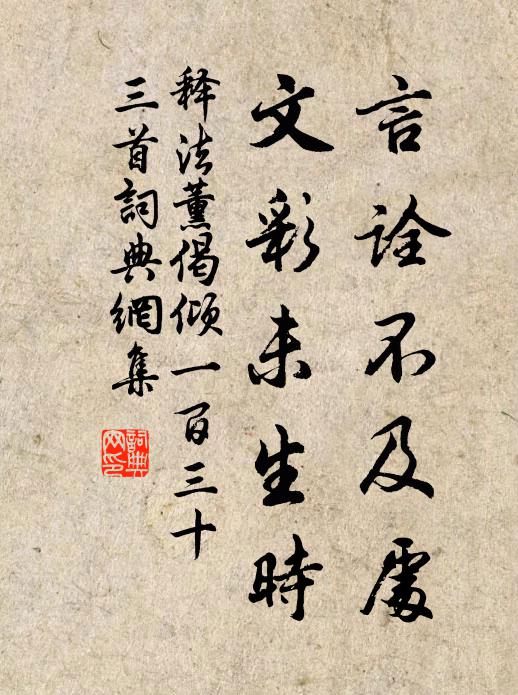 言詮不及處
文彩未生時
释法薰偈倾一百三十
三首詞典網集
詞典網印